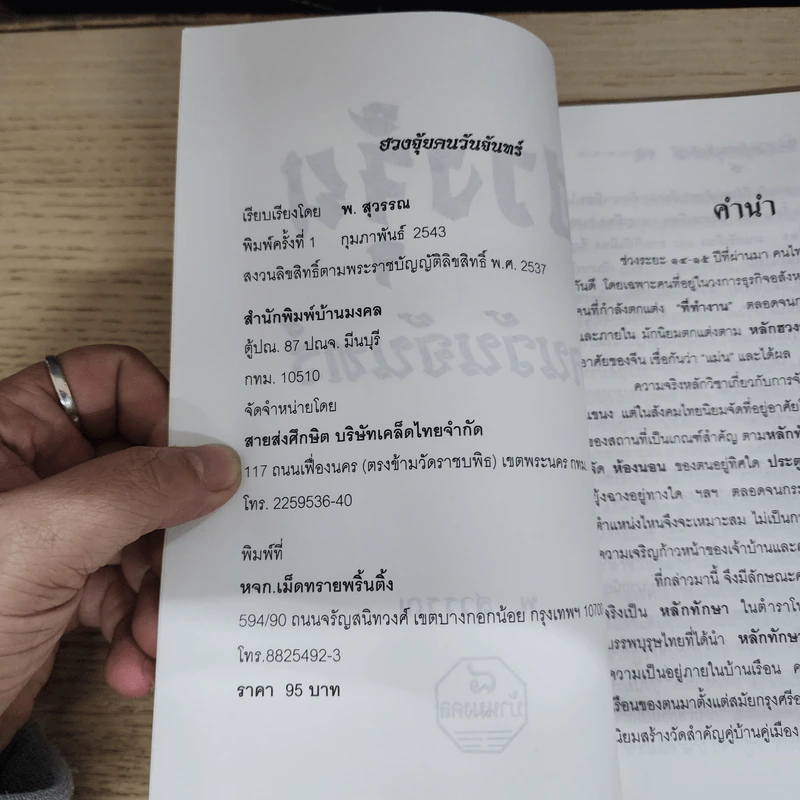 ฮวงจุ้ยคนวันจันทร์
เรียบเรียงโดย พ. สุวรรณ
พิมพ์ครั้งที่ 1 กุมภาพันธ์ 2543
สงวนลิขสิทธิ์ตามพระราชบัญญัติลิขสิทธิ์ พ.ศ. 2537
สำนักพิมพ์บ้านมงคล
ตู้ปณ. 87 ปณจ. มีนบุรี
กทม. 10510
จัดจำหน่ายโดย
สายส่งศึกษิต บริษัทเคล็ดไทยจำกัด
117 ถนนเฟื่องนคร (ตรงข้ามวัดราชบพิธ) เขตพระนคร กทม.
โทร. 2259536-40
พิมพ์ที่
หจก.เม็ดทรายพริ้นติ้ง
594/90 ถนนจรัญสนิทวงศ์ เขตบางกอกน้อย กรุงเทพฯ 10700
โทร.8825492-3
ราคา 95 บาท
คำนำ
ช่วงระยะ ๑๔-๑๕ ปีที่ผ่านมา คนไท
กันดี โดยเฉพาะคนที่อยู่ในวงการธุรกิจอสังห
คนที่กำลังตกแต่ง "ที่ทำงาน" ตลอดจน
และภายใน มักนิยมตกแต่งตาม หลักฮวง
อาศัยของจีน เชื่อกันว่า "แม่น" และได้ผล
ความจริงหลักวิชาเกี่ยวกับการจั
แขนง แต่ในสังคมไทยนิยมจัดที่อยู่อาศัย
ของสถานที่เป็นเกณฑ์สำคัญ ตามหลักทั
จัด ห้องนอน ของตนอยู่ทิศใด ประตู
ยุ้งฉางอยู่ทางใด ฯลฯ ตลอดจนกระ
ตำแหน่งไหนจึงจะเหมาะสม ไม่เป็นกา
ความเจริญก้าวหน้าของเจ้าบ้านและ
ที่กล่าวมานี้ จึงมีลักษณะค
จริงเป็น หลักทักษา ในตำราโห
บรรพบุรุษไทยที่ได้นำ หลักทักษา
ความเป็นอยู่ภายในบ้านเรือน ค
เรือนของตนมาตั้งแต่สมัยกรุงศรีอ
นิยมสร้างวัดสำคัญคู่บ้านคู่เมือง